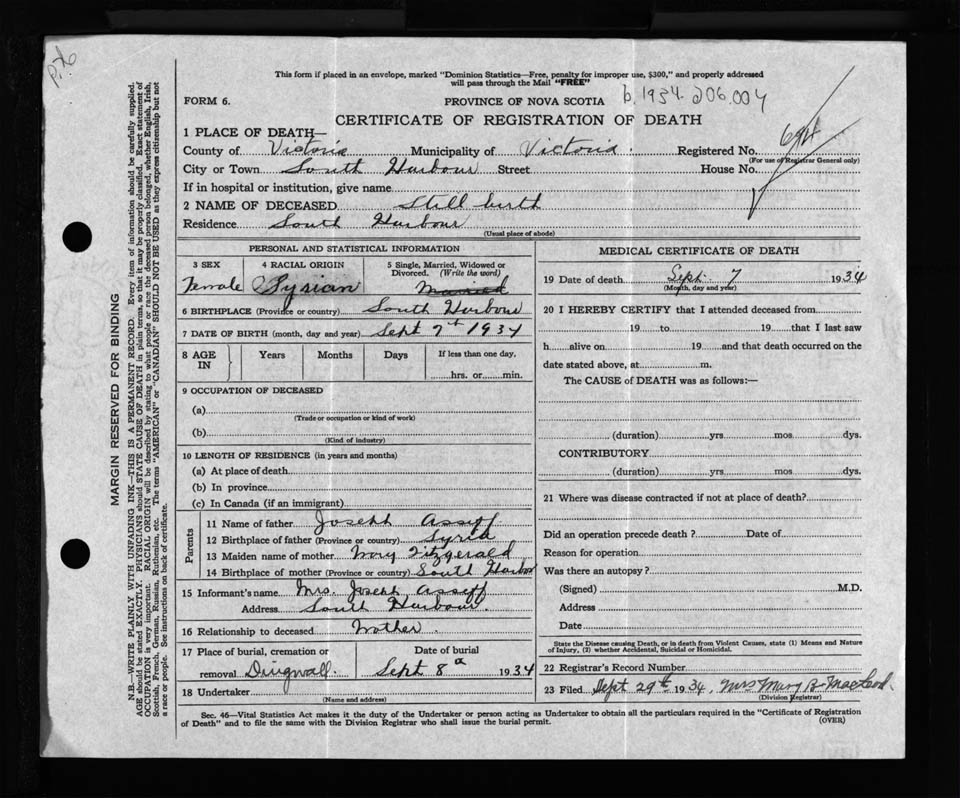 This form if placed in an envelope, marked "Dominion Statistics—Free, penalty for improper use, $300," and properly addressed
will pass through the Mail "FREE"
b. 1934. 206.004
FORM 6.
PROVINCE OF NOVA SCOTIA
CERTIFICATE OF REGISTRATION OF DEATH
1 PLACE OF DEATH—
County of Victoria Municipality of Victoria. Registered No.
(For use of Registrar General only)
City or Town South Harbour Street House No.
If in hospital or institution, give name
2 NAME OF DECEASED Still birth
Residence South Harbour
(Usual place of abode)
PERSONAL AND STATISTICAL INFORMATION
3 SEX 4 RACIAL ORIGIN 5 Single, Married, Widowed or
Divorced. (Write the word)
Female Syrian Married
6 BIRTHPLACE (Province or country) South Harbour
7 DATE OF BIRTH (month, day and year) Sept 7th 1934
8 AGE IN Years Months Days If less than one day,
hrs. or min.
9 OCCUPATION OF DECEASED
(a)
(Trade or occupation or kind of work)
(b)
(Kind of industry)
10 LENGTH OF RESIDENCE (in years and months)
(a) At place of death
(b) In province
(c) In Canada (if an immigrant)
Parents
11 Name of father Joseph Assyff
12 Birthplace of father (Province or country) Syria
13 Maiden name of mother Mary Fitzgerald
14 Birthplace of mother (Province or country) South Harbor
15 Informant's name Mrs. Joseph Assyff
Address South Harbour.
16 Relationship to deceased Mother.
17 Place of burial, cremation or Date of burial
removal Dingwall. Sept 8th 1934
18 Undertaker
(Name and address)
MEDICAL CERTIFICATE OF DEATH
19 Date of death Sept. 7 1934
(Month, day and year)
20 I HEREBY CERTIFY that I attended deceased from
19 to 19 that I last saw
h alive on 19 and that death occurred on the
date stated above, at m.
The CAUSE of DEATH was as follows:—
(duration) yrs. mos. dys.
CONTRIBUTORY
(duration) yrs. mos. dys.
21 Where was disease contracted if not at place of death?
Did an operation precede death? Date of
Reason for operation
Was there an autopsy?
(Signed) M.D.
Address
Date
State the Disease causing Death, or in death from Violent Causes, state (1) Means and Nature
of Injury, (2) whether Accidental, Suicidal or Homicidal.
22 Registrar's Record Number
23 Filed Sept 29th 1934, Mrs Mary B. MacLeod.
(Division Registrar)
Sec. 46—Vital Statistics Act makes it the duty of the Undertaker or person acting as Undertaker to obtain all the particulars required in the "Certificate of Registration
of Death" and to file the same with the Division Registrar who shall issue the burial permit.
(OVER)
MARGIN RESERVED FOR BINDING
N.B.—WRITE PLAINLY WITH UNFADING INK—THIS IS A PERMANENT RECORD. Every item of information should be carefully supplied.
AGE should be stated EXACTLY. PHYSICIANS should STATE CAUSE OF DEATH in plain terms, so that it may be properly classified. Exact statement of
OCCUPATION is very important. RACIAL ORIGIN will be described by stating to what people or race the deceased person belonged, whether English, Irish,
Scottish, French, German, Russian, Ruthenian, etc. The terms "AMERICAN" or "CANADIAN" SHOULD NOT BE USED as they express citizenship but not
a race or people. See instructions on back of certificate.